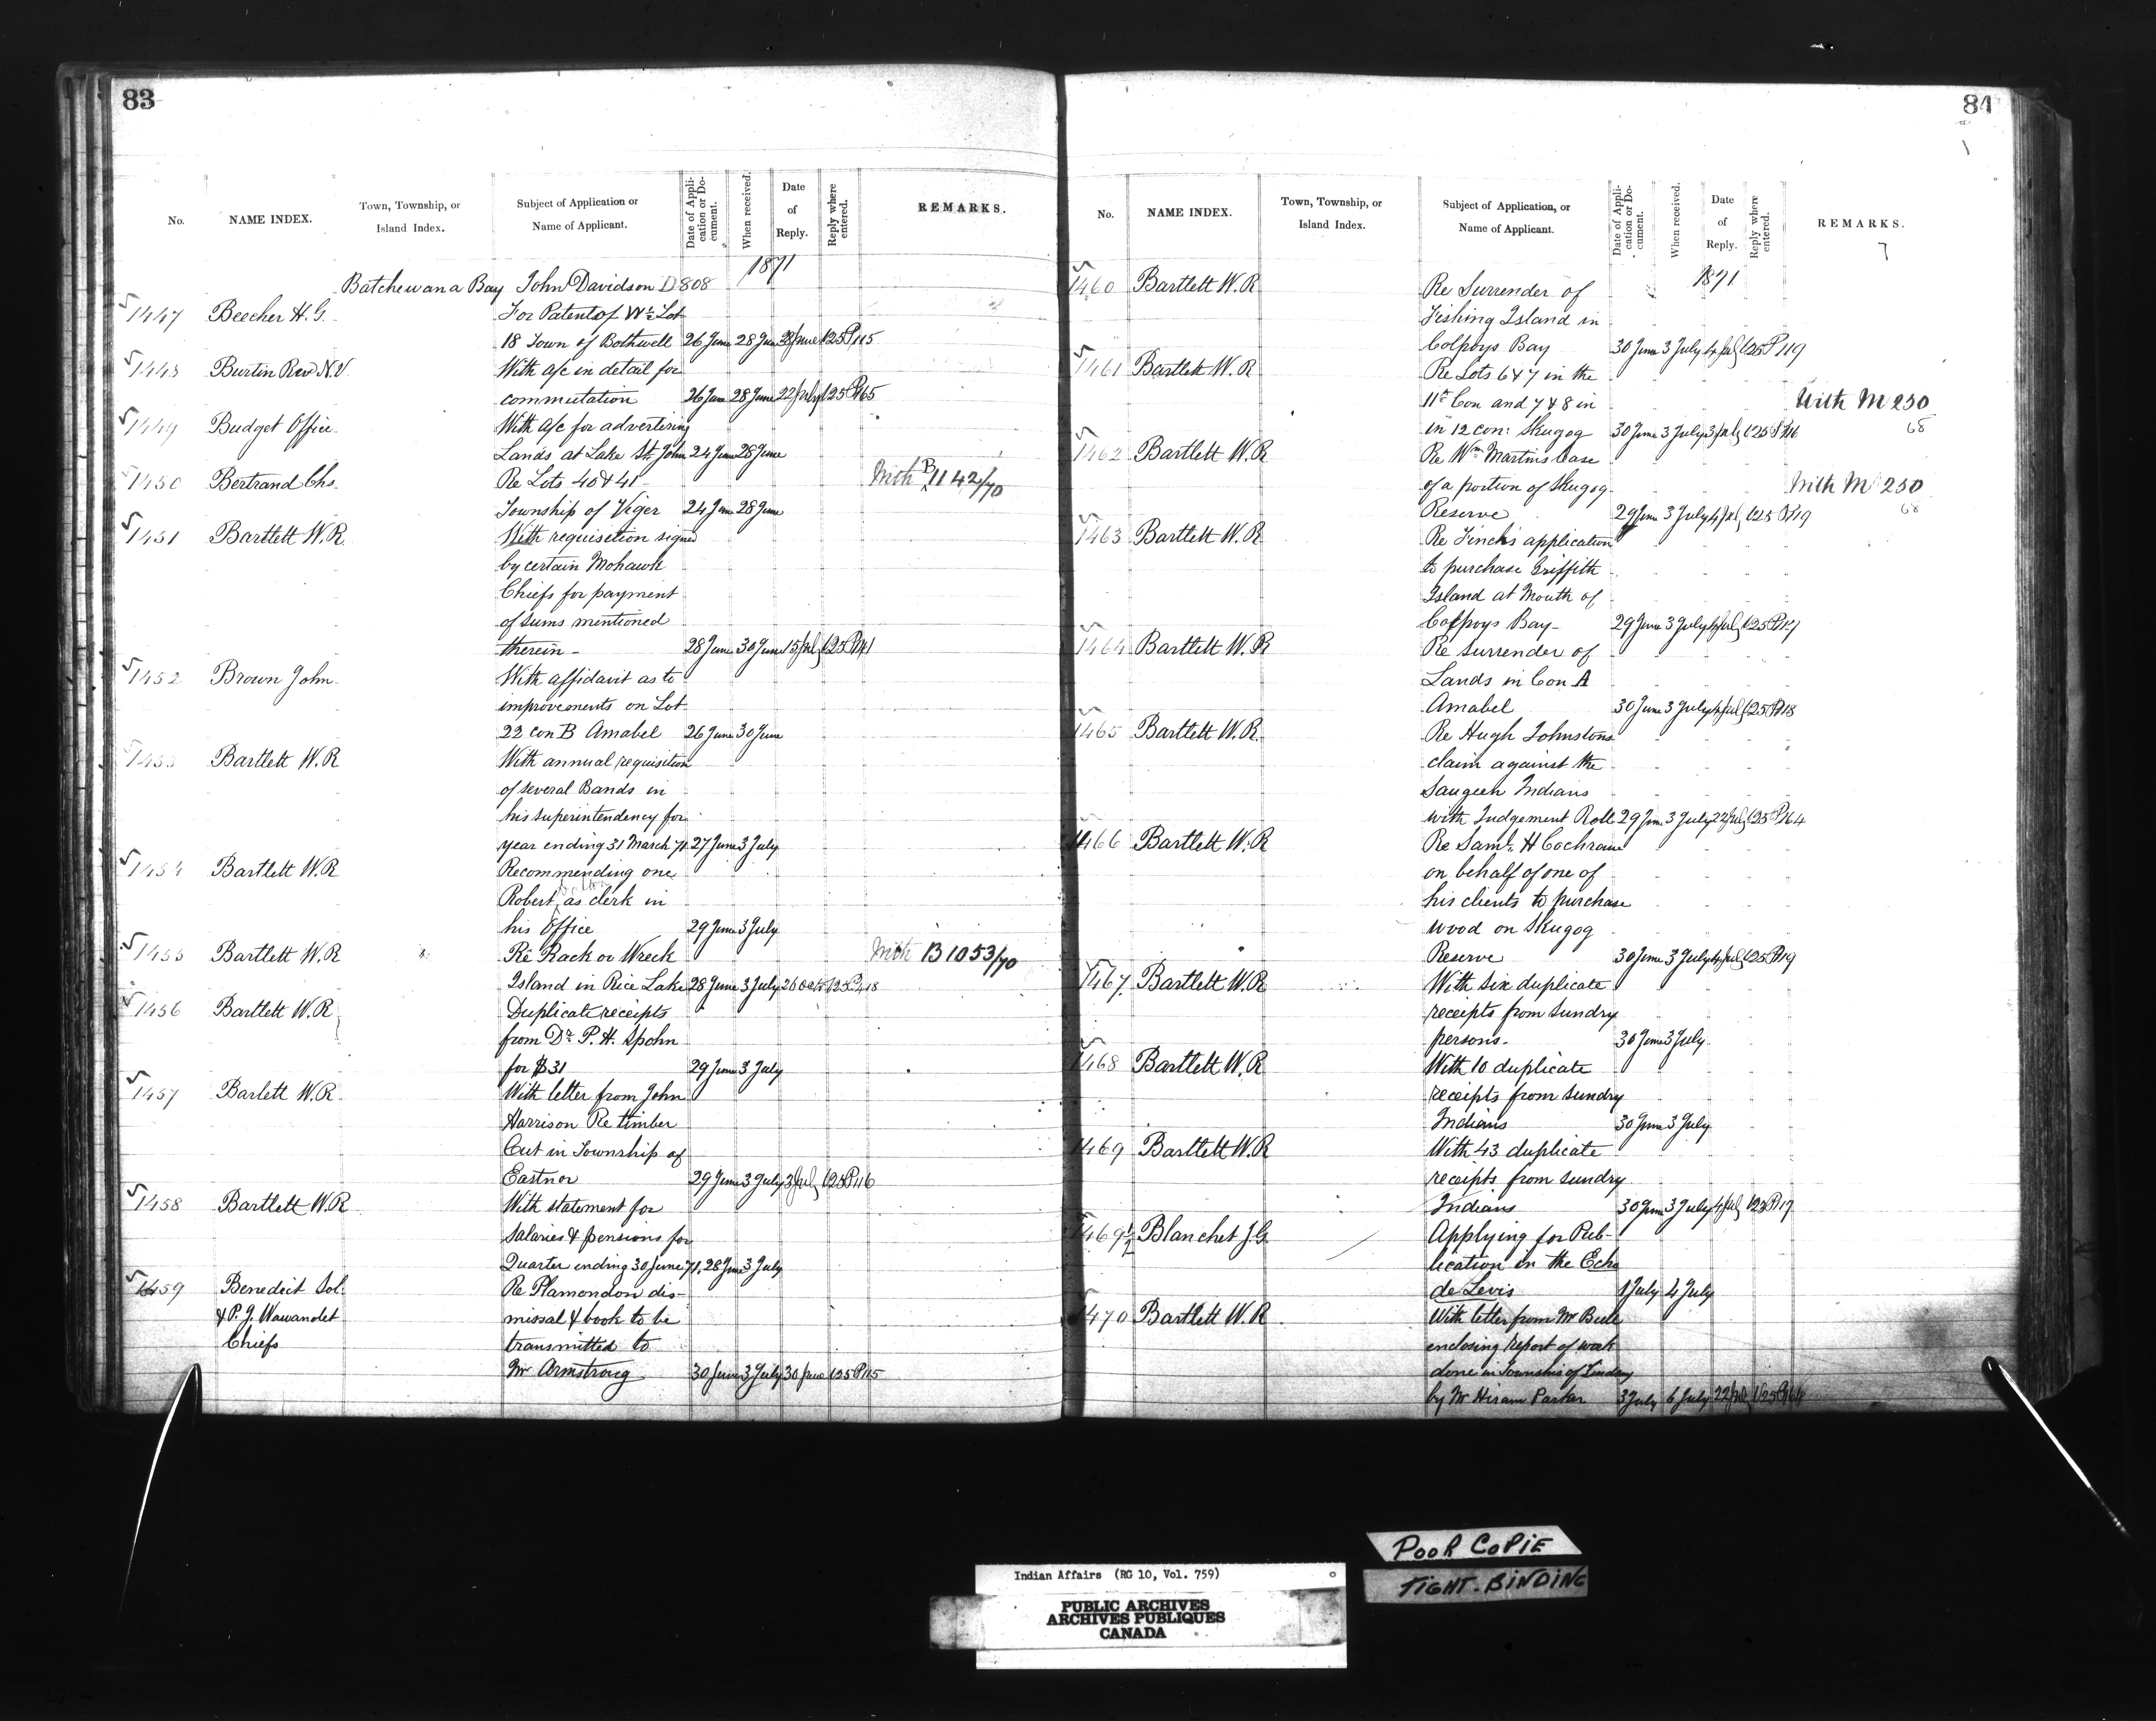 83
No. NAME INDEX. Town, Township, or Island Index. Subject of Application or Name of Applicant. Date of Application or Document. When received. Date of Reply. Reply where entered. REMARKS.
1871
Batchewana Bay John Davidson D 808
1447 Beecher H. G. For Patent of W½ Lot
18 Town of Bothwell 26 June 28 June 28 June 125 P115
1448 Burtin Rev N.V. With a/c in detail for
commutation 26 June 28 June 22 July 125 P165
1449 Budget Office With a/c for advertising
Lands at Lake St. John 24 June 28 June
1450 Bertrand Chs. Re Lots 40 & 41 With B 1142/70
Township of Viger 24 June 28 June
1451 Bartlett W. R. With requisition signed
by certain Mohawk
Chiefs for payment
of sums mentioned
therein - 28 June 30 June 15 July 125 P141
1452 Brown John With affidavit as to
improvements on Lot
22 con B Amabel 26 June 30 June
1453 Bartlett W. R With annual requisition
of several Bands in
his superintendency for
year ending 31 March 71 27 June 3 July
1454 Bartlett W. R Recommending one
Robert as clerk in
his Office 29 June 3 July
1455 Bartlett W. R Re Rack or Wreck With B 1053/70
Island in Rice Lake 28 June 3 July 26 Oct 125 P418
1456 Bartlett W. R Duplicate receipts
from Dr. P. H. Spohn
for $31 29 June 3 July
1457 Barlett W. R. With letter from John
Harrison Re timber
Cut in Township of
Eastnor 29 June 3 July 3 July 125 P116
1458 Bartlett W. R With statement for
Salaries & pensions for
Quarter ending 30 June 71. 28 June 3 July
1459 Benedict Sol. Re Plamondon dis-
& P. J. Wawanolet missal & book to be
Chiefs transmitted to
Mr Armstrong 30 June 3 July 30 June 125 P115
84
No. NAME INDEX. Town, Township, or Island Index. Subject of Application, or Name of Applicant. Date of Application or Document. When received. Date of Reply. Reply where entered. REMARKS.
1871
1460 Bartlett W. R Re Surrender of
Fishing Island in
Colpoys Bay 30 June 3 July 4 July 125 P119
1461 Bartlett W. R Re Lots 6 & 7 in the
11th Con and 7 & 8 in With M 230
in 12 con: Skugog 30 June 3 July 3 July 125 P116 68
1462 Bartlett W. R Re Wm Martins Case
of a portion of Skugog With M 230
Reserve 29 June 3 July 4 July 125 P119 68
1463 Bartlett W. R Re Finch's application
to purchase Griffith
Island at Mouth of
Colpoys Bay - 29 June 3 July 4 July 125 P117
1464 Bartlett W. R Re surrender of
Lands in Con A
Amabel 30 June 3 July 4 July 125 P118
1465 Bartlett W. R. Re Hugh Johnstons
claim against the
Saugeen Indians
with Judgement Roll 29 June 3 July 22 July 125 P164
1466 Bartlett W. R Re Saml. H Cochrane
on behalf of one of
his clients to purchase
wood on Skugog
Reserve 30 June 3 July 4 July 125 P119
1467 Bartlett W. R With six duplicate
receipts from sundry
persons - 30 June 3 July
1468 Bartlett W. R. With 10 duplicate
receipts from sundry
Indians 30 June 3 July
1469 Bartlett W. R With 43 duplicate
receipts from sundry
Indians 30 June 3 July 4 July 125 P117
1469½ Blanchet J. G. Applying for Pub-
lication in the Echo
de Levis 1 July 4 July
1470 Bartlett W. R With letter from Mr
enclosing report of work
done in Township of Lindsay
by Mr Hiram Parker 3 July 6 July 22 July 125 P164
POOR COPIE
TIGHT-BINDING
Indian Affairs (RG 10, Vol. 759)
PUBLIC ARCHIVES
ARCHIVES PUBLIQUES
CANADA